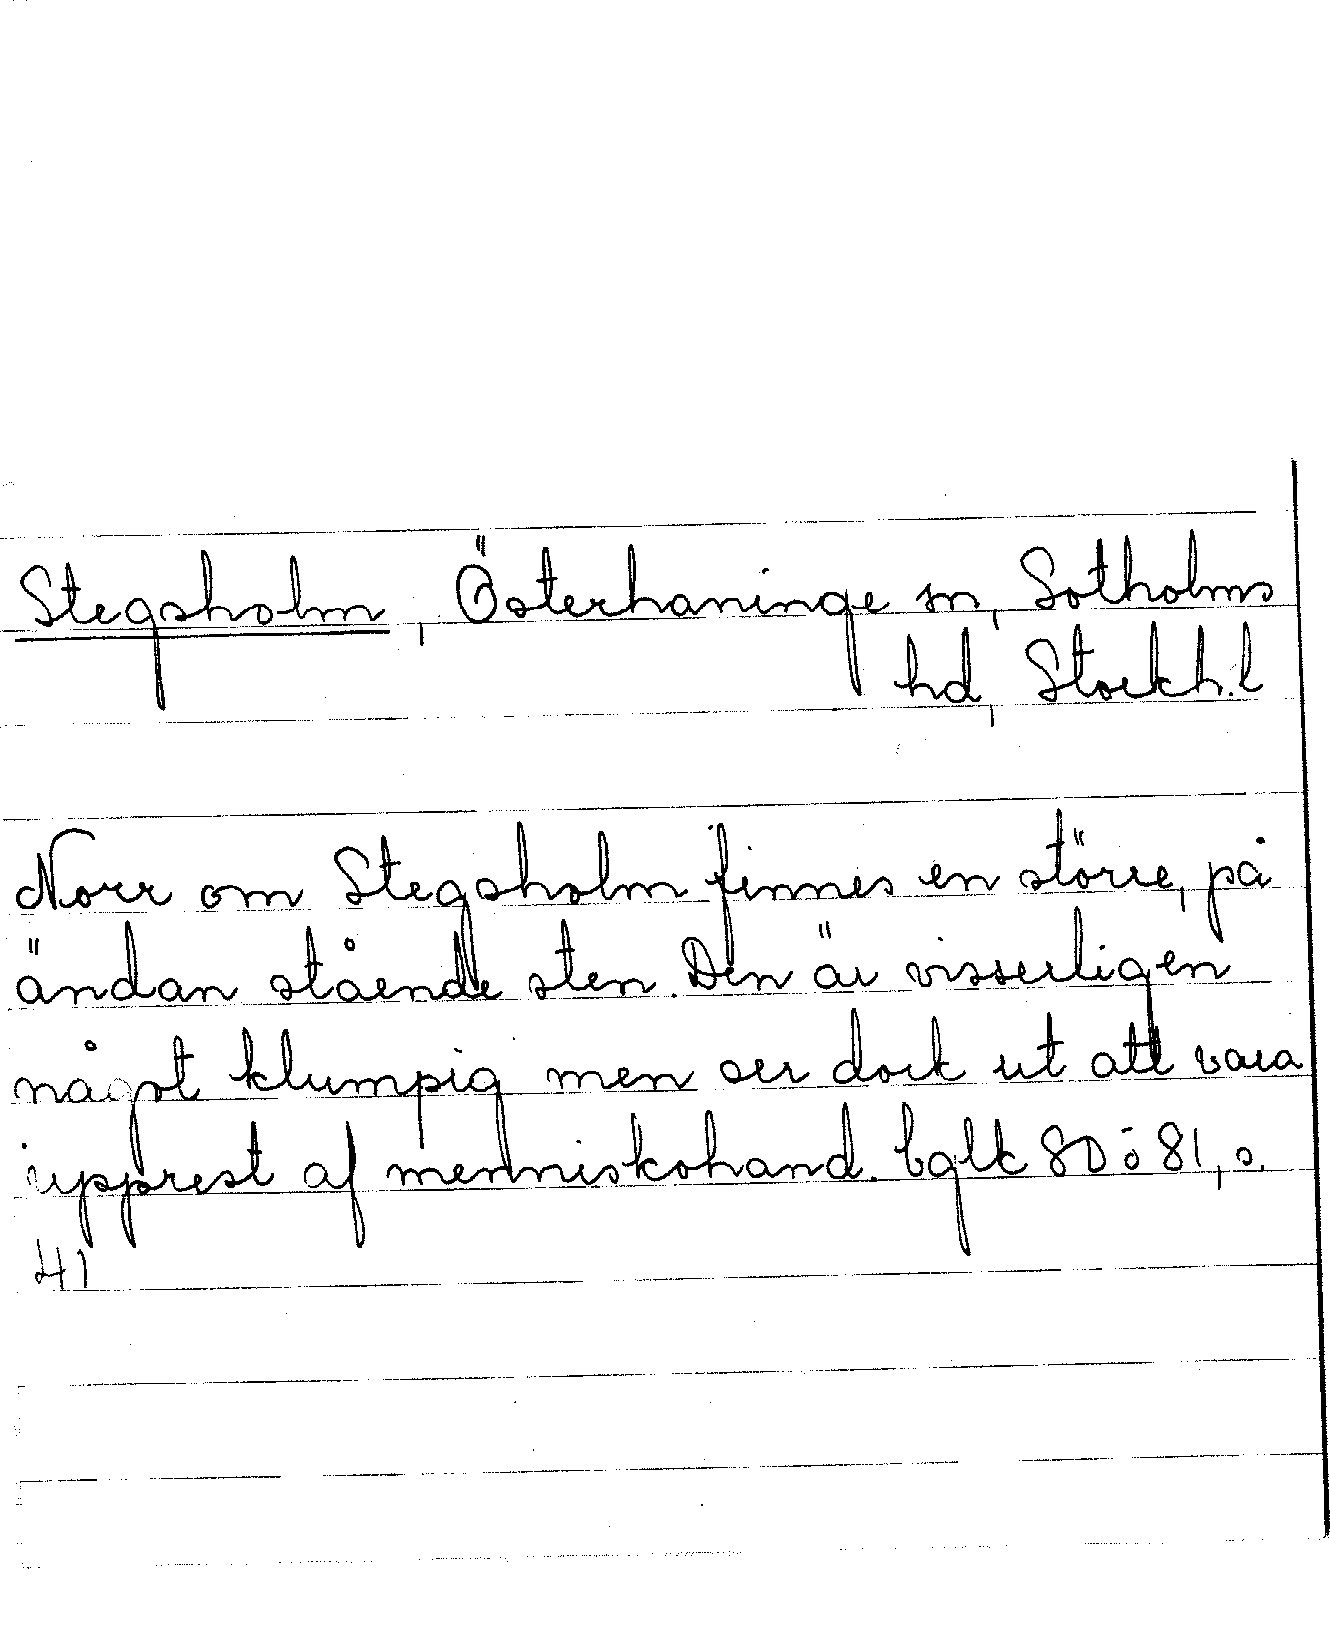 Stegsholm, Österhaninge sn, Sotholms
hd, Stockh. l
Norr om Stegsholm finnes en större, på
ändan stående sten. Den är visserligen
något klumpig men ser dock ut att vara
upprest af menniskohand. bglk 80 o 81, s.
41